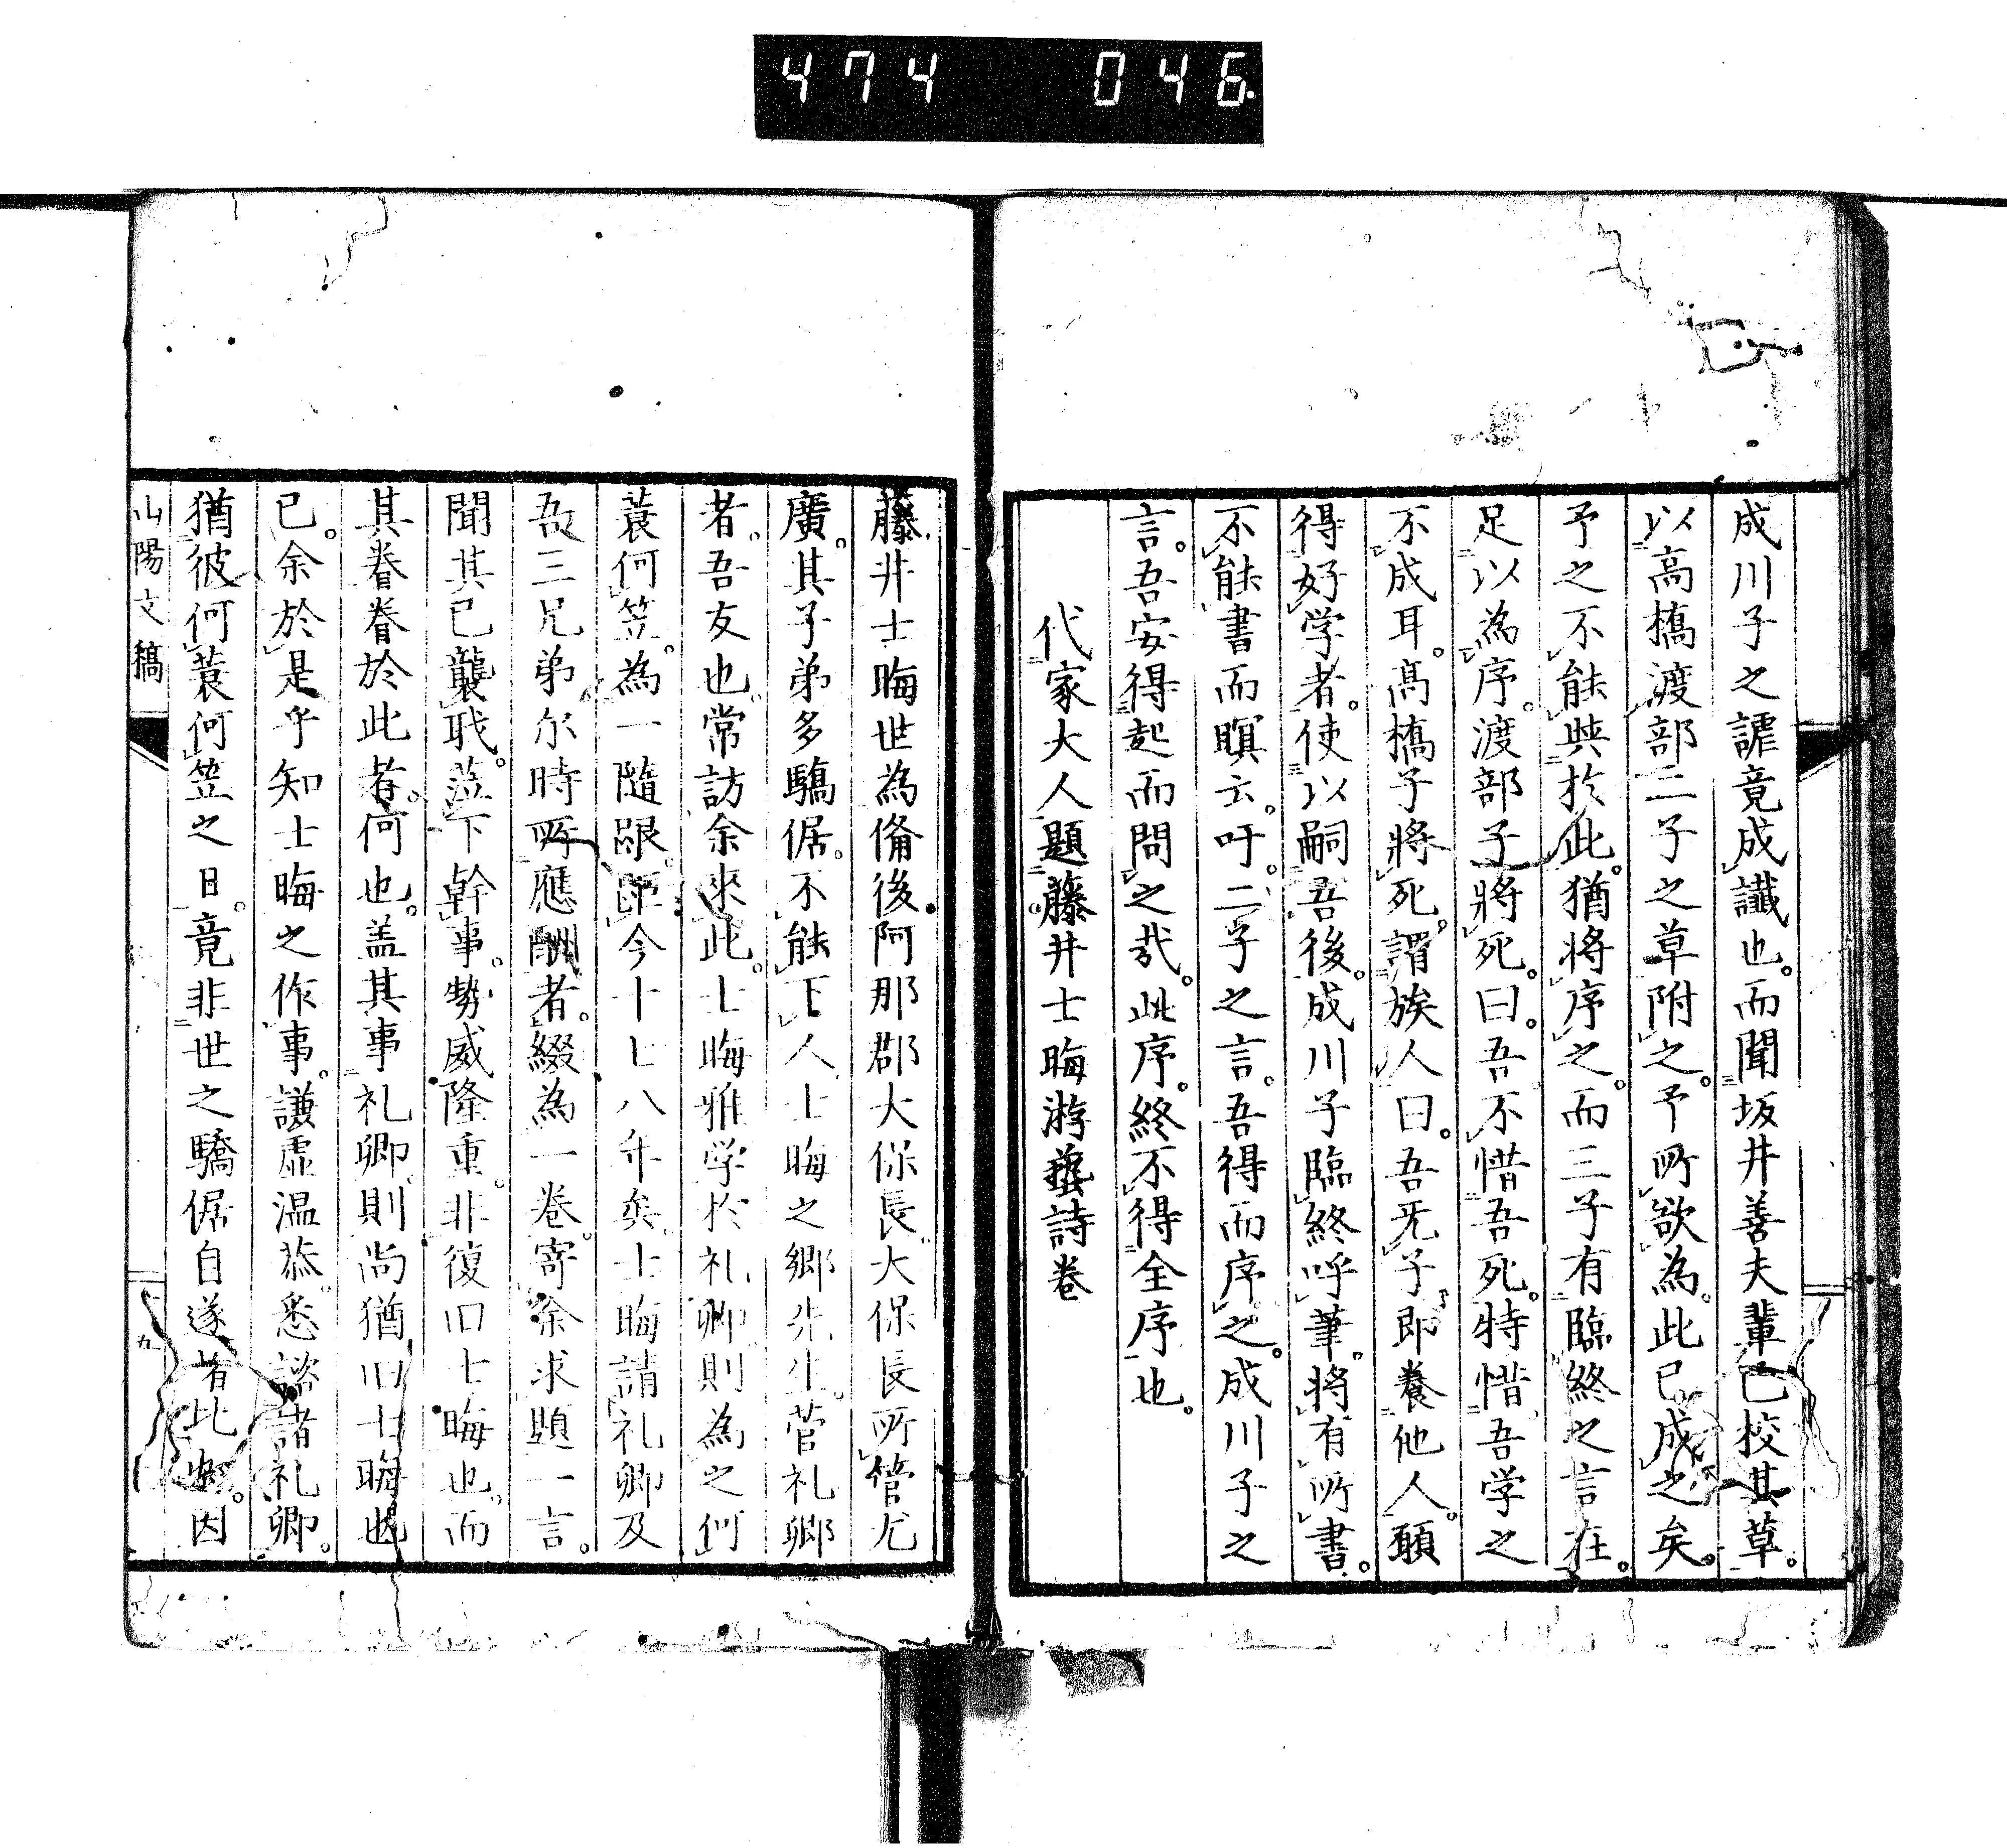 474 046
成川子之謔竟成讖也。而聞坂井善夫輩已校其草。
以高橋渡部二子之草附之。予所欲為。此已成之矣。
予之不能與於此。猶將序之。而三子有臨終之言在。
足以為序。渡部子將死。曰。吾不惜吾死。特惜吾学之
不成耳。髙橋子將死。謂族人曰。吾无子。即養他人。願
得好学者。使以嗣吾後。成川子臨終呼筆。將有所書。
不能書而瞑云。吁。二子之言。吾得而序之。成川子之
言。吾安得起而問之哉。此序。終不得全序也。
代家大人題藤井士晦游藝詩卷
藤井士晦世為備後阿那郡大保長。大保長所管尤
廣。其子弟多驕倨。不能下人。士晦之鄉先生。菅礼卿
者。吾友也。常訪余來此。士晦雅学於礼卿。則為之何
蓑何笠。為一隨跟。距今十七八年矣。士晦請礼卿及
吾三兄弟。尔時所應酬者。綴為一卷。寄余求題一言。
聞其已襲職。蒞下幹事。勢威隆重。非復旧士晦也。而
其眷眷於此者。何也。盖其事礼卿。則尚猶旧士晦也
已。余於是乎知士晦之作事。謙虛温恭。悉諮諸礼卿。
猶彼何蓑何笠之日。竟非世之驕倨自遂者比也。因
山陽文稿
九